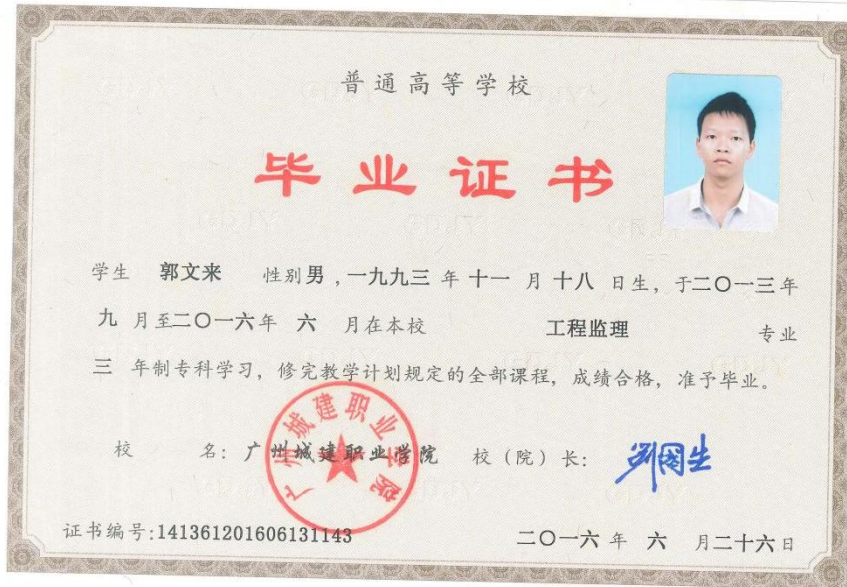 普通高等学校
毕业证书
学生 郭文来 性别 男 , 一九九三 年 十一 月 十八 日生, 于二〇一三年
九 月至二〇一六年 六 月在本校 工程监理 专业
三 年制专科学习, 修完教学计划规定的全部课程, 成绩合格, 准予毕业。
广州城建职业学院
校 名: 广州城建职业学院 校(院)长: 刘国生
证书编号:141361201606131143 二〇一六 年 六 月二十六日